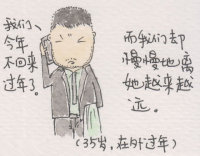 我们、
今年
不回来
过年了。
而我们却
慢慢地离
她越来越
远。
(35岁，在外过年)